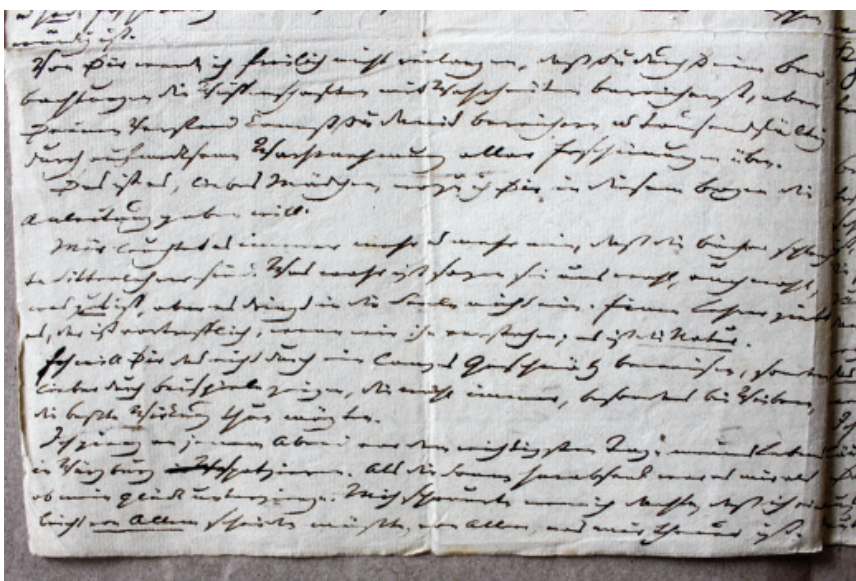 würdig ist.
Von Dir werde ich freilich nicht verlangen, daß Du durch Deine Beo-
bachtungen die Wissenschaften mit Wahrheiten bereicherst, aber
Deinen Verstand kannst Du damit bereichern u tausendfältig
durch aufmerksame Wahrnehmung aller Erscheinungen üben.
Das ist es, liebes Mädchen, wozu ich Dir in diesem Bogen die
Anleitung geben will.
Mir leuchtet es immer mehr u mehr ein, daß die Bücher schlech-
te Sittenlehrer sind. Was wahr ist sagen sie uns wohl, auch wohl,
was gut ist, aber es dringt in die Seele nicht ein. Einen Lehrer giebt
es, der ist vortrefflich, wenn wir ihn verstehen; es ist die Natur.
Ich will Dir das nicht durch ein langes Geschwätz beweisen, sondern
lieber durch Beispiele zeigen, die wohl immer, besonders bei Weibern,
die beßte Wirkung thun mögten.
Ich ging an jenem Abend vor dem wichtigsten Tage meines Lebens
in Würzburg spatzieren. Als die Sonne herabsank war es mir als
ob mein Glück unterginge. Mich schauerte wenn ich dachte, daß ich viel-
leicht von Allem scheiden müßte, von Allem, was mir theuer ist.